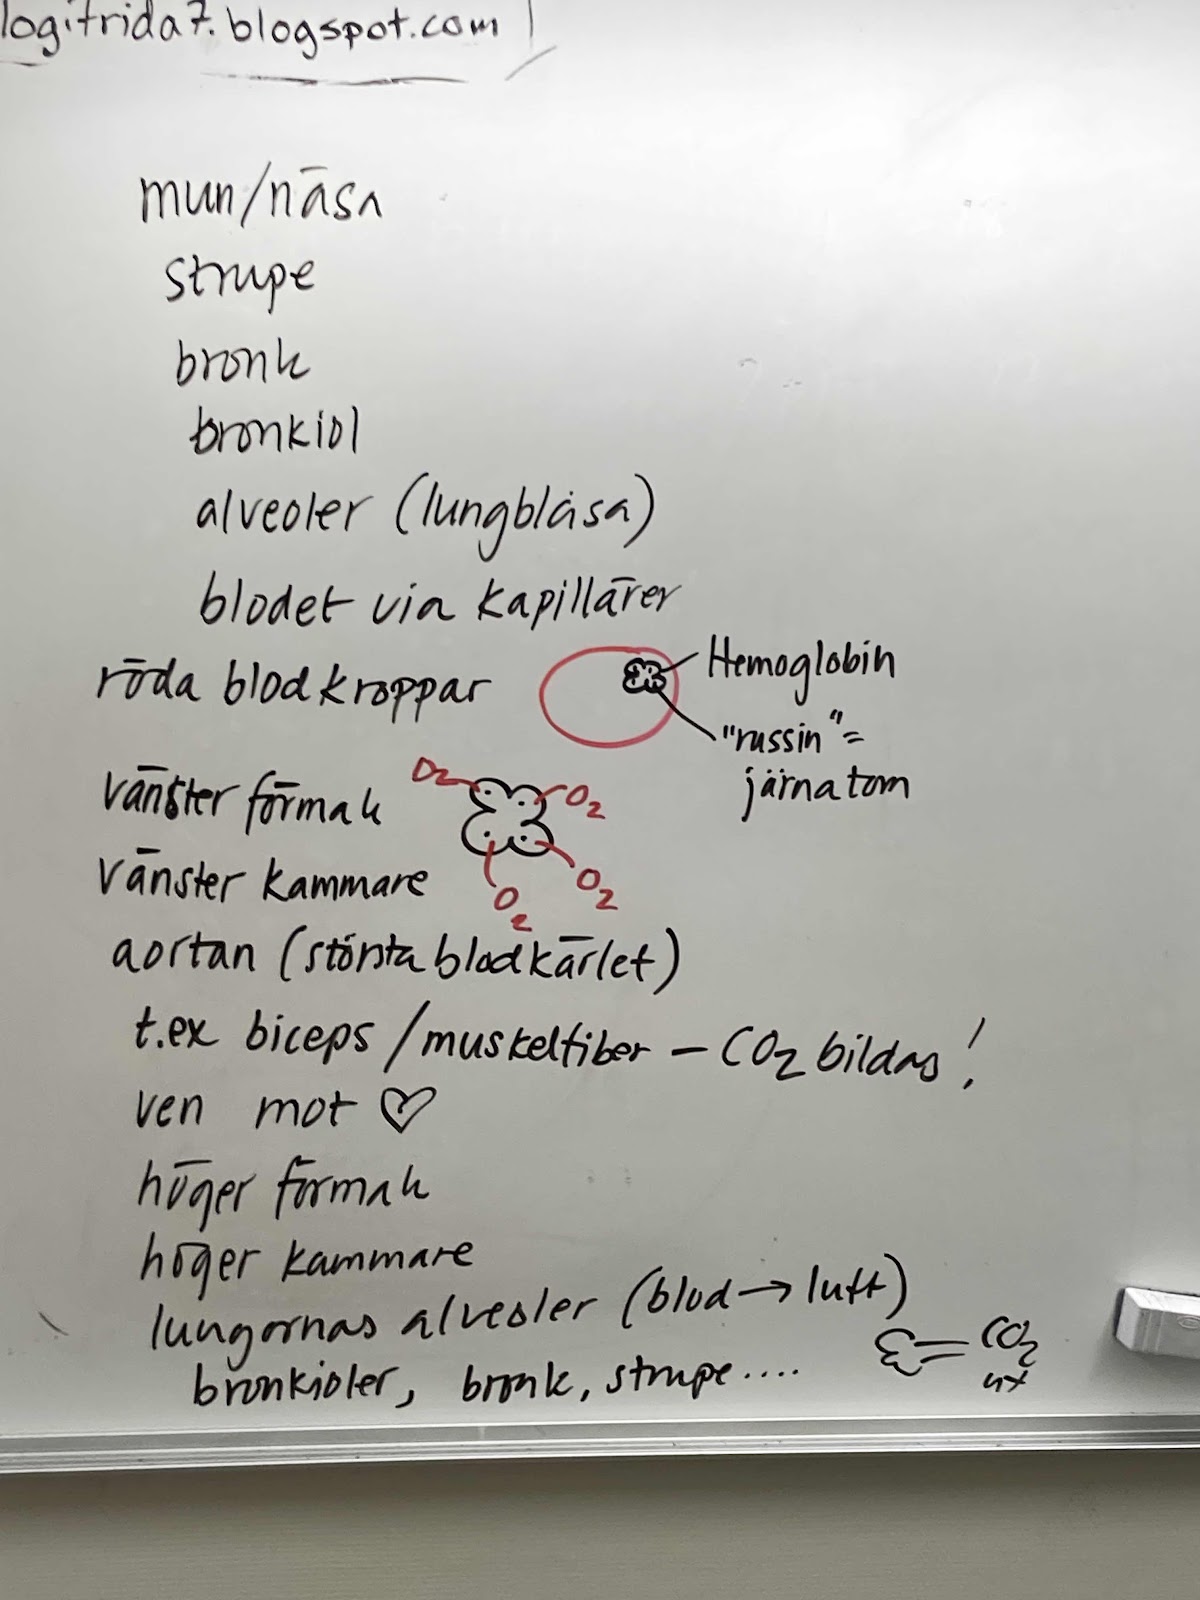 logifrida7.blogspot.com
mun/näsa
strupe
bronk
bronkiol
alveoler (lungblåsa)
blodet via kapillärer
röda blodkroppar
Hemoglobin
"russin"=
järnatom
vänster förmak
O2
O2
O2
O2
vänster kammare
aortan (största blodkärlet)
t.ex biceps /muskelfiber – CO2 bildas!
ven mot ♡
höger förmak
höger kammare
lungornas alveoler (blod→luft)
CO2
ut
bronkioler, bronk, strupe....